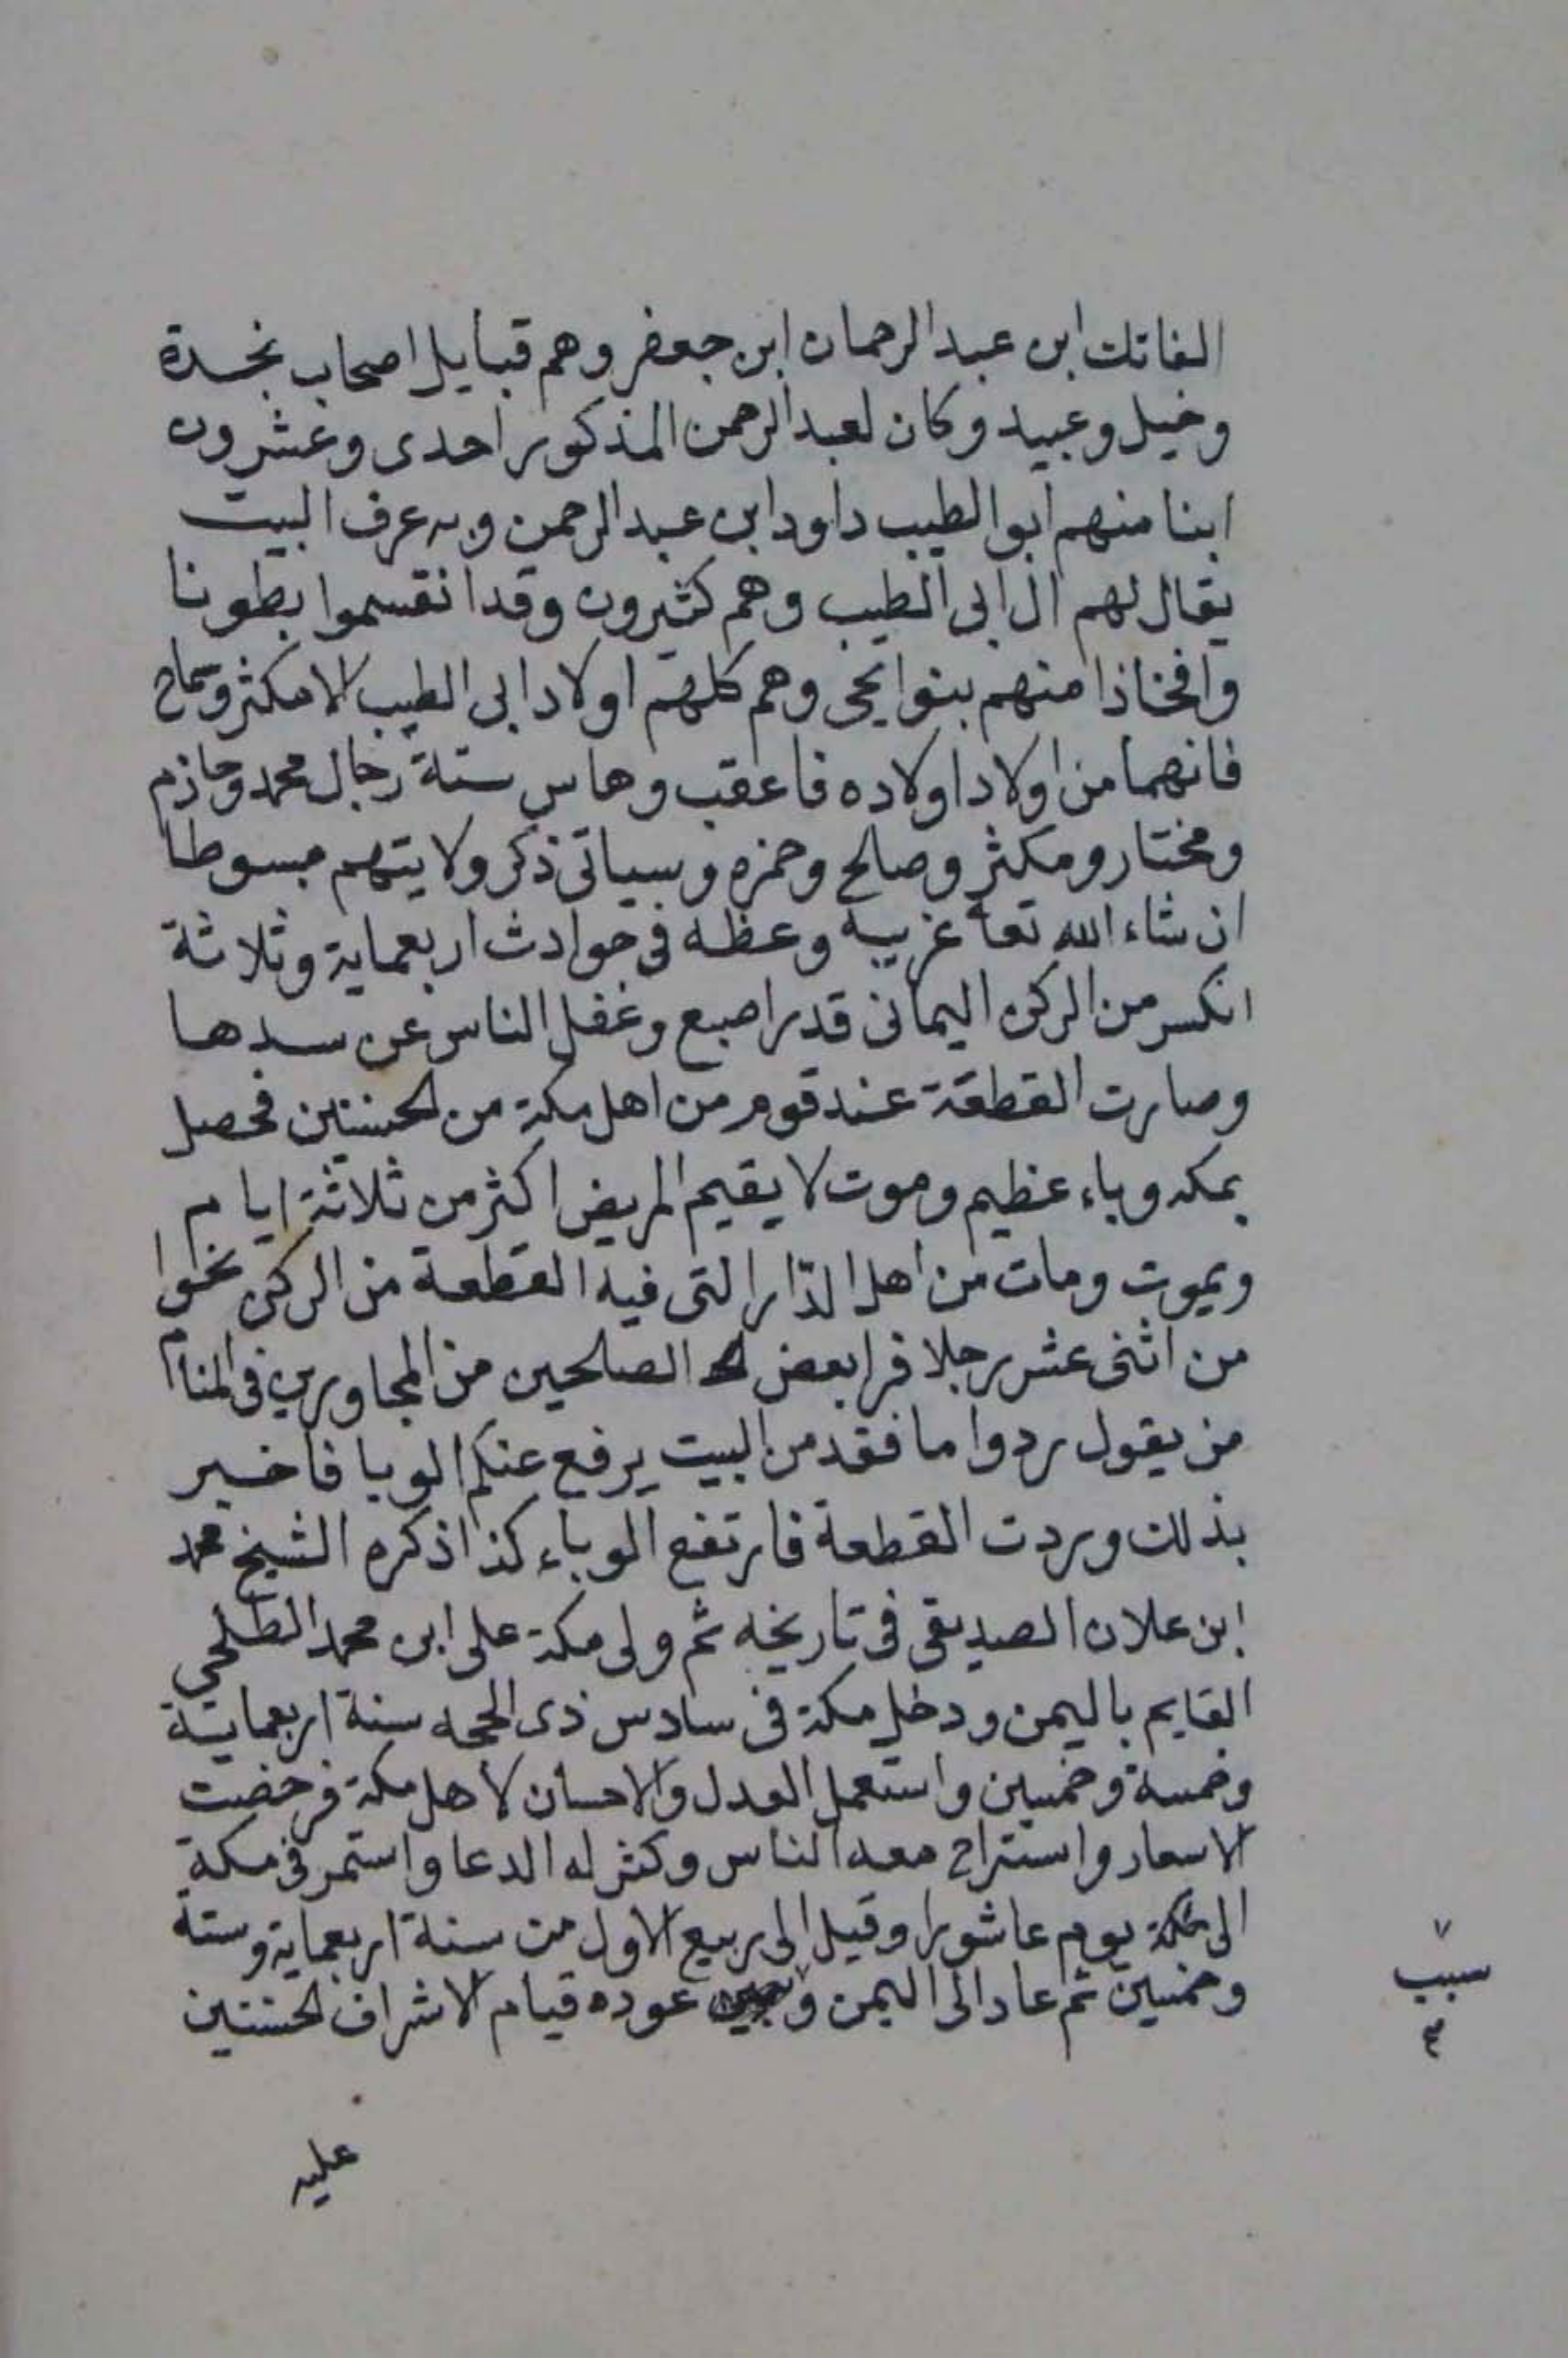 الفاتك ابن عبد الرحمان ابن جعفر وهم قبايل اصحاب نجدة
وخيل وعبيد وكان لعبد الرحمن المذكور احدى وعشرون
ابنا منهم ابو الطيب داود ابن عبد الرحمن وبه عرف البيت
يقال لهم ال ابى الطيب وهم كثيرون وقد انقسموا بطونا
وافخاذا منهم بنوا يحى وهم كلهم اولاد ابى الطيب الا مكثر وشماخ
فانهما من اولاد اولاده فاعقب وهاس ستة رجال محمد وحازم
ومختار ومكثر وصالح وحمزه وسياتى ذكر ولايتهم مبسوطا
ان شاء الله تعا غريبه وعظه فى حوادث اربعماية وثلاثة
انكسر من الركن اليمانى قدر اصبع وغفل الناس عن سدها
وصارت القطعة عند قوم من اهل مكة من الحسنين فحصل
بمكه وباء عظيم وموت لا يقيم المريض اكثر من ثلاثة ايام
ويموت ومات من اهل الدّار التى فيه القطعة من الركن نحوا
من اثنى عشر رجلا فرا بعض الصلحين من المجاورين فى المنام
من يقول ردوا ما فقد من البيت يرفع عنكم الوبا فاخبر
بذلك وردت القطعة فارتفع الوباء كذا ذكره الشيخ محمد
ابن علان الصديقى فى تاريخه ثم ولى مكة على ابن محمد الطلحي
القايم باليمن ودخل مكة فى سادس ذى الحجه سنة اربعماية
وخمسة وخمسين واستعمل العدل والاحسان لاهل مكة فرخصت
الاسعار واستراح معه الناس وكثر له الدعا واستمر فى مكة
الى يوم عاشورا وقيل الى ربيع الاول من سنة اربعماية وستة
وخمسين ثم عاد الى اليمن و عوده قيام الاشراف الحسنين
سبب
عليه